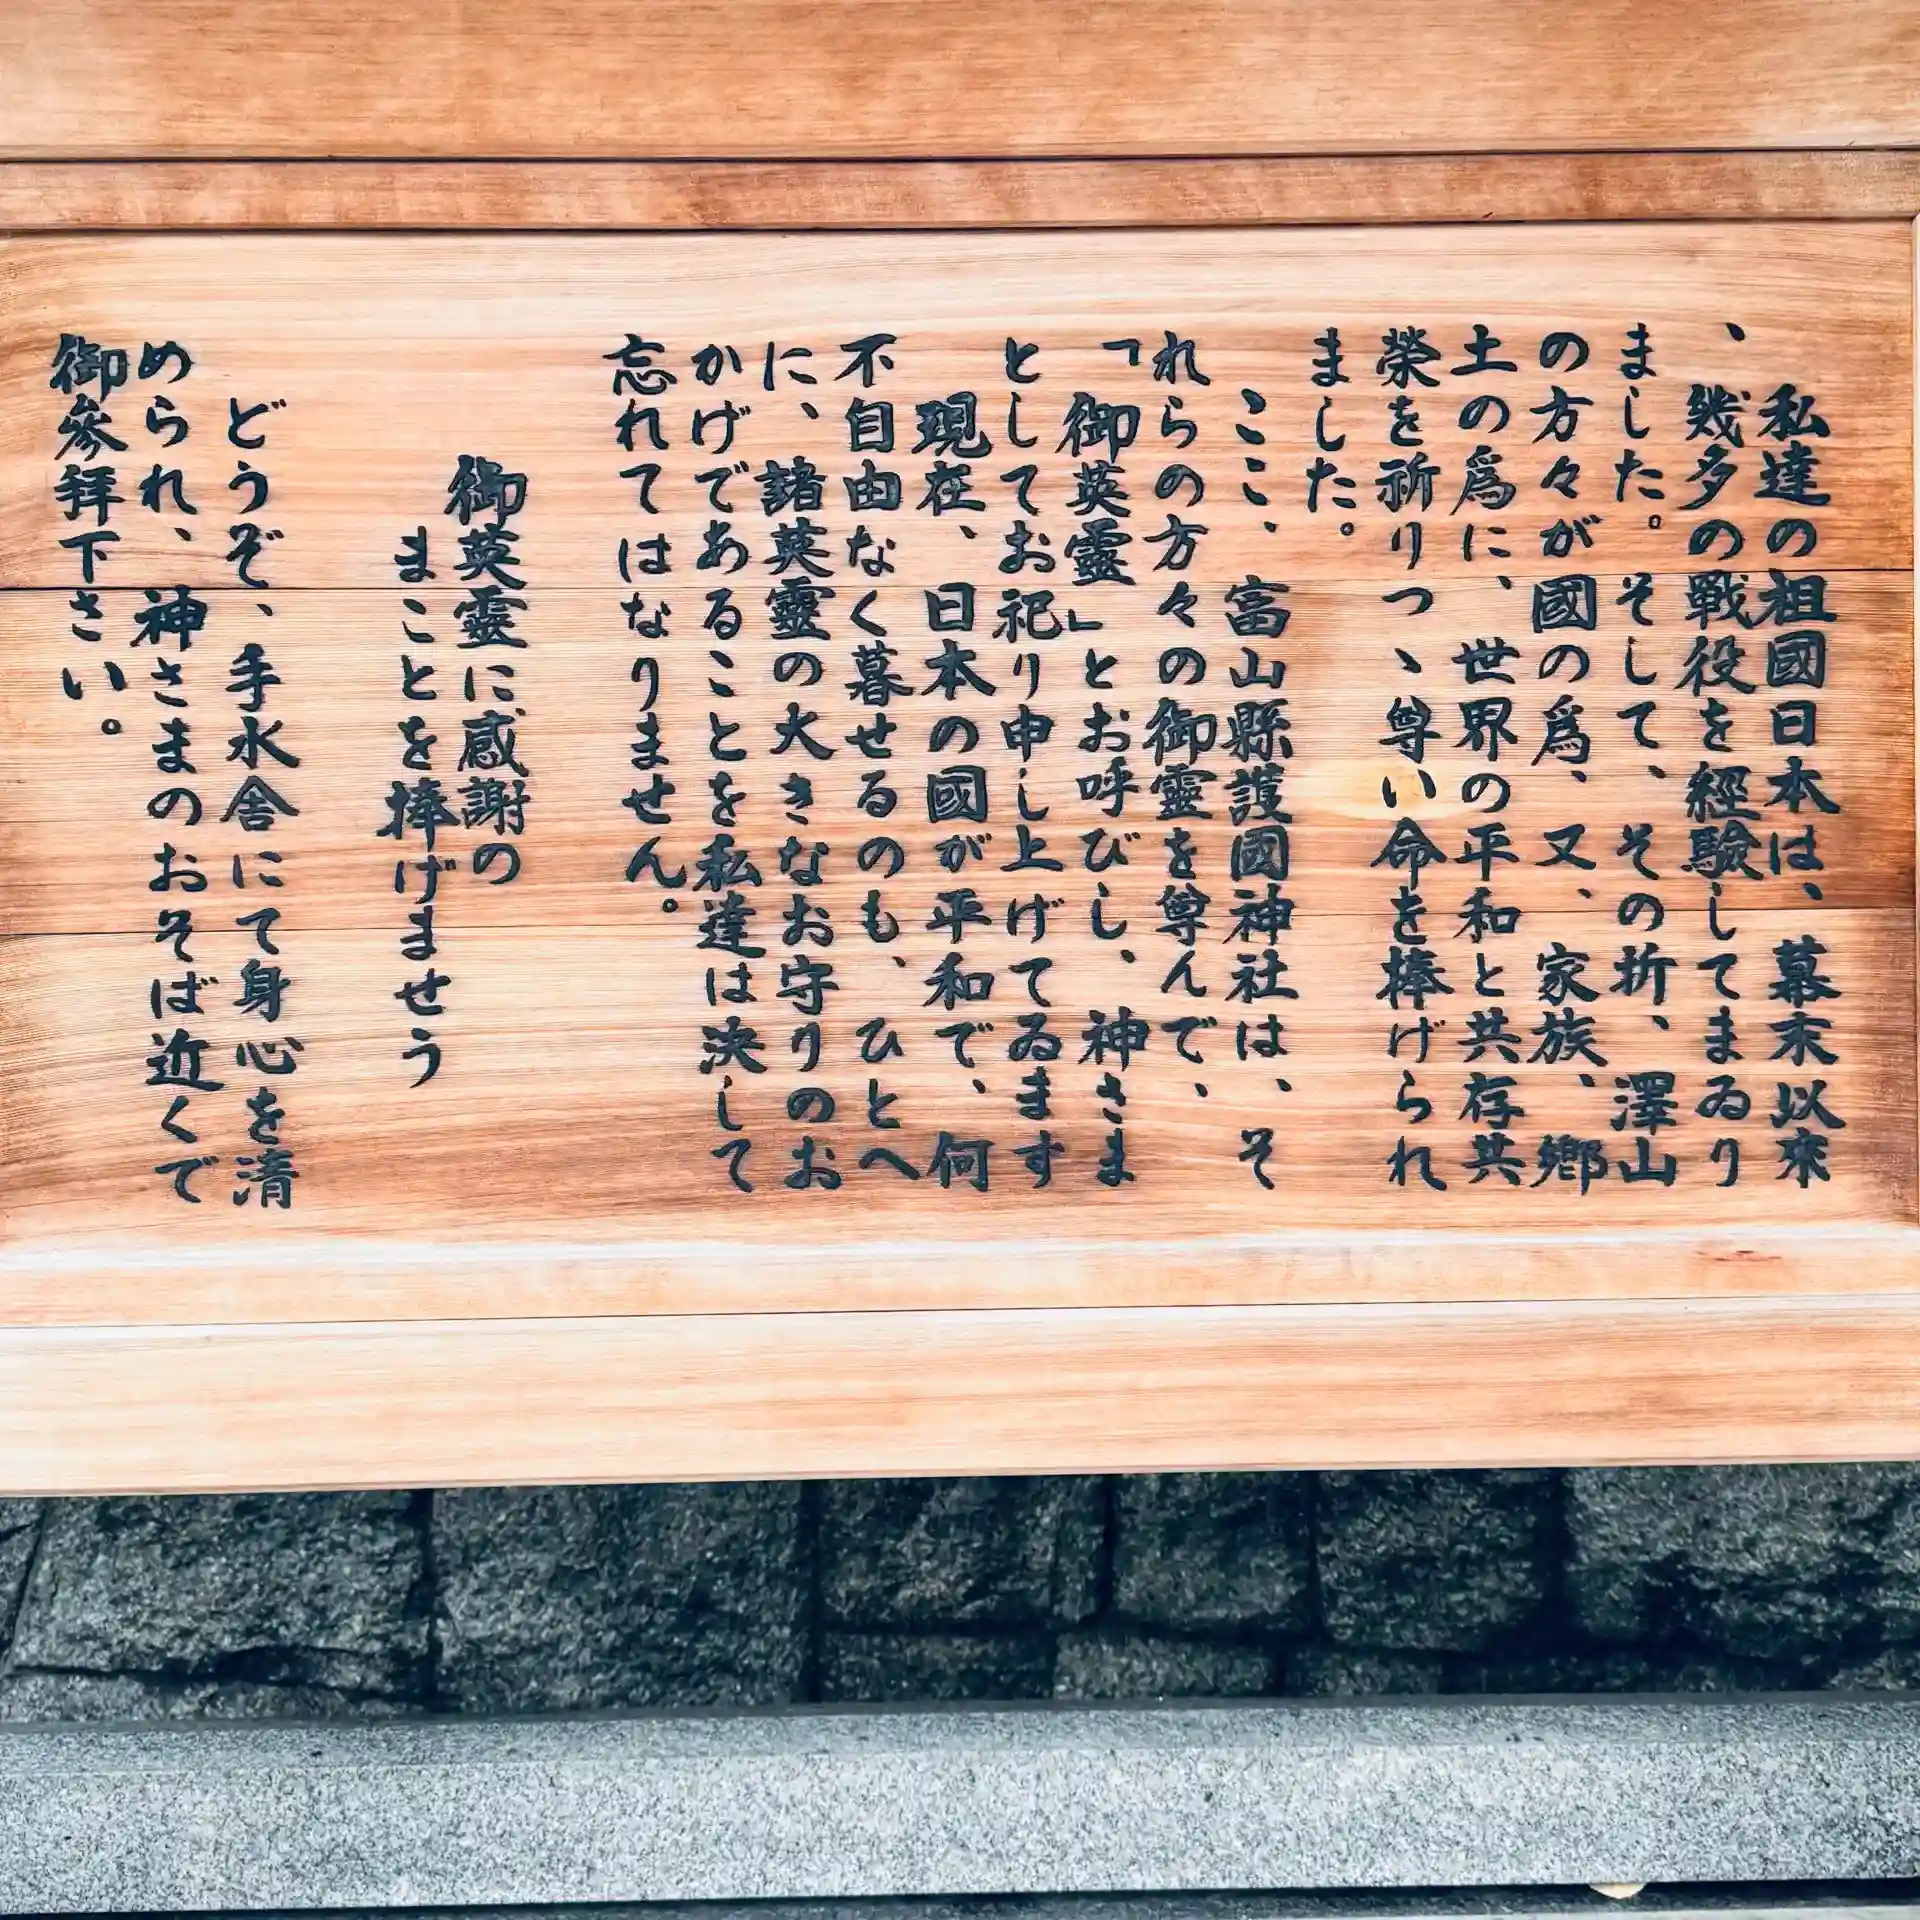 私達の祖國日本は、幕末以來
、幾多の戰役を經驗してまゐり
ました。そして、その折、澤山
の方々が國の爲、又、家族、鄉
土の爲に、世界の平和と共存共
榮を祈りつゝ尊い命を捧げられ
ました。
ここ、富山縣護國神社は、そ
れらの方々の御靈を尊んで、
「御英靈」とお呼びし、神さま
としてお祀り申し上げてゐます
現在、日本の國が平和で、何
不自由なく暮せるのも、ひとへ
に、諸英靈の大きなお守りのお
かげであることを私達は決して
忘れてはなりません。
御英靈に感謝の
まことを捧げませう
どうぞ、手水舎にて身心を清
められ、神さまのおそば近くで
御參拜下さい。